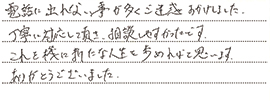 電話に出れない事が多くご迷惑おかけしました。
丁寧に対応して頂き、相談しやすかったです。
これを機に新たな人生を歩めればと思います。
ありがとうございました。